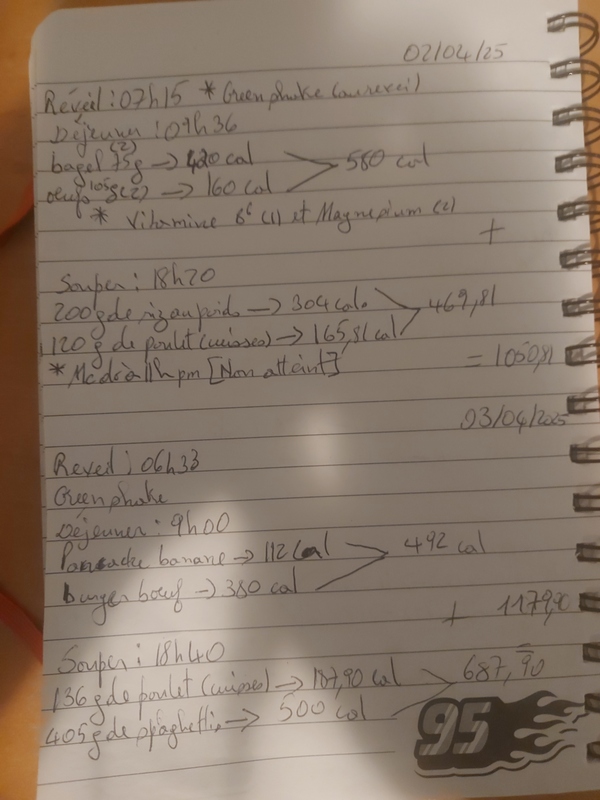 02/04/25
Réveil : 07h15 * Greenphake (au reveil)
Déjeuner : 09h36
bagel (2) 75g → 420 cal
580 cal
oeufs 105g (2) → 160 cal
* Vitamine B6 (1) et Magnesium (2)
+
Souper : 18h20
200g de riz au poids → 304 cal
469,81
120g de poulet (cuisses) → 165,81 cal
* 11h pm [Non atteint]
= 1050,81
03/04/2025
Reveil : 06h33
Greenphake
Déjeuner : 9h00
Pancake banane → 112 cal
492 cal
burger boeuf → 380 cal
+ 1179,90
Souper : 18h40
136g de poulet (cuisses) → 187,90 cal
687,90
405g de spaghetti → 500 cal
95